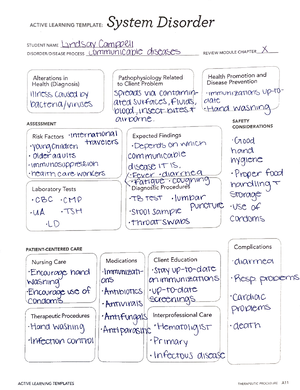 ACTIVE LEARNING TEMPLATE: System Disorder
STUDENT NAME Lindsay Campbell
DISORDER/DISEASE PROCESS Communicable diseases REVIEW MODULE CHAPTER X
Alterations in
Health (Diagnosis)
illness caused by
bacteria/viruses
Pathophysiology Related
to Client Problem
Spreads via contamin-
ated surfaces, fluids,
blood, insect bites +
airborne
Health Promotion and
Disease Prevention
·immunizations up-to-
date
·Hand washing
ASSESSMENT
SAFETY
CONSIDERATIONS
Risk Factors ·international
travelers
·young children
·older adults
·immunosuppression
·health care workers
Expected Findings
·Depends on which
communicable
disease it is.
·Fever ·diarrhea
·Fatigue ·coughing
·Good
hand
hygiene
·Proper food
handling +
storage
·use of
condoms
Laboratory Tests
·CBC ·CMP
·UA ·TSH
·LD
Diagnostic Procedures
·TB TEST ·lumbar
puncture
·Stool sample
·Throat swabs
PATIENT-CENTERED CARE
Complications
·diarrhea
·Resp problems
·Cardiac
problems
·death
Nursing Care
·Encourage hand
washing
·Encourage use of
condoms
Medications
·Immunizati-
ons
·Antibiotics
·Antivirals
·Antifungals
·Antiparasitic
Client Education
·Stay up-to-date
on immunizations
·up-to-date
screenings
Therapeutic Procedures
·Hand washing
·Infection control
Interprofessional Care
·Hematologist
·Primary
·Infectious disease
ACTIVE LEARNING TEMPLATES
THERAPEUTIC PROCEDURE A11